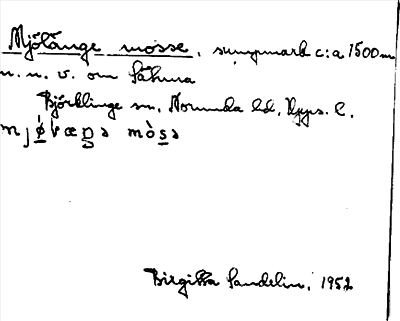 Mjölänge mosse, sumpmark c:a 1500 m
n.n.v. om Såhma
Björklinge sn, Norunda hd, Upps. l.
mjǿlæŋə mòsə
Birgitta Sandelin, 1952